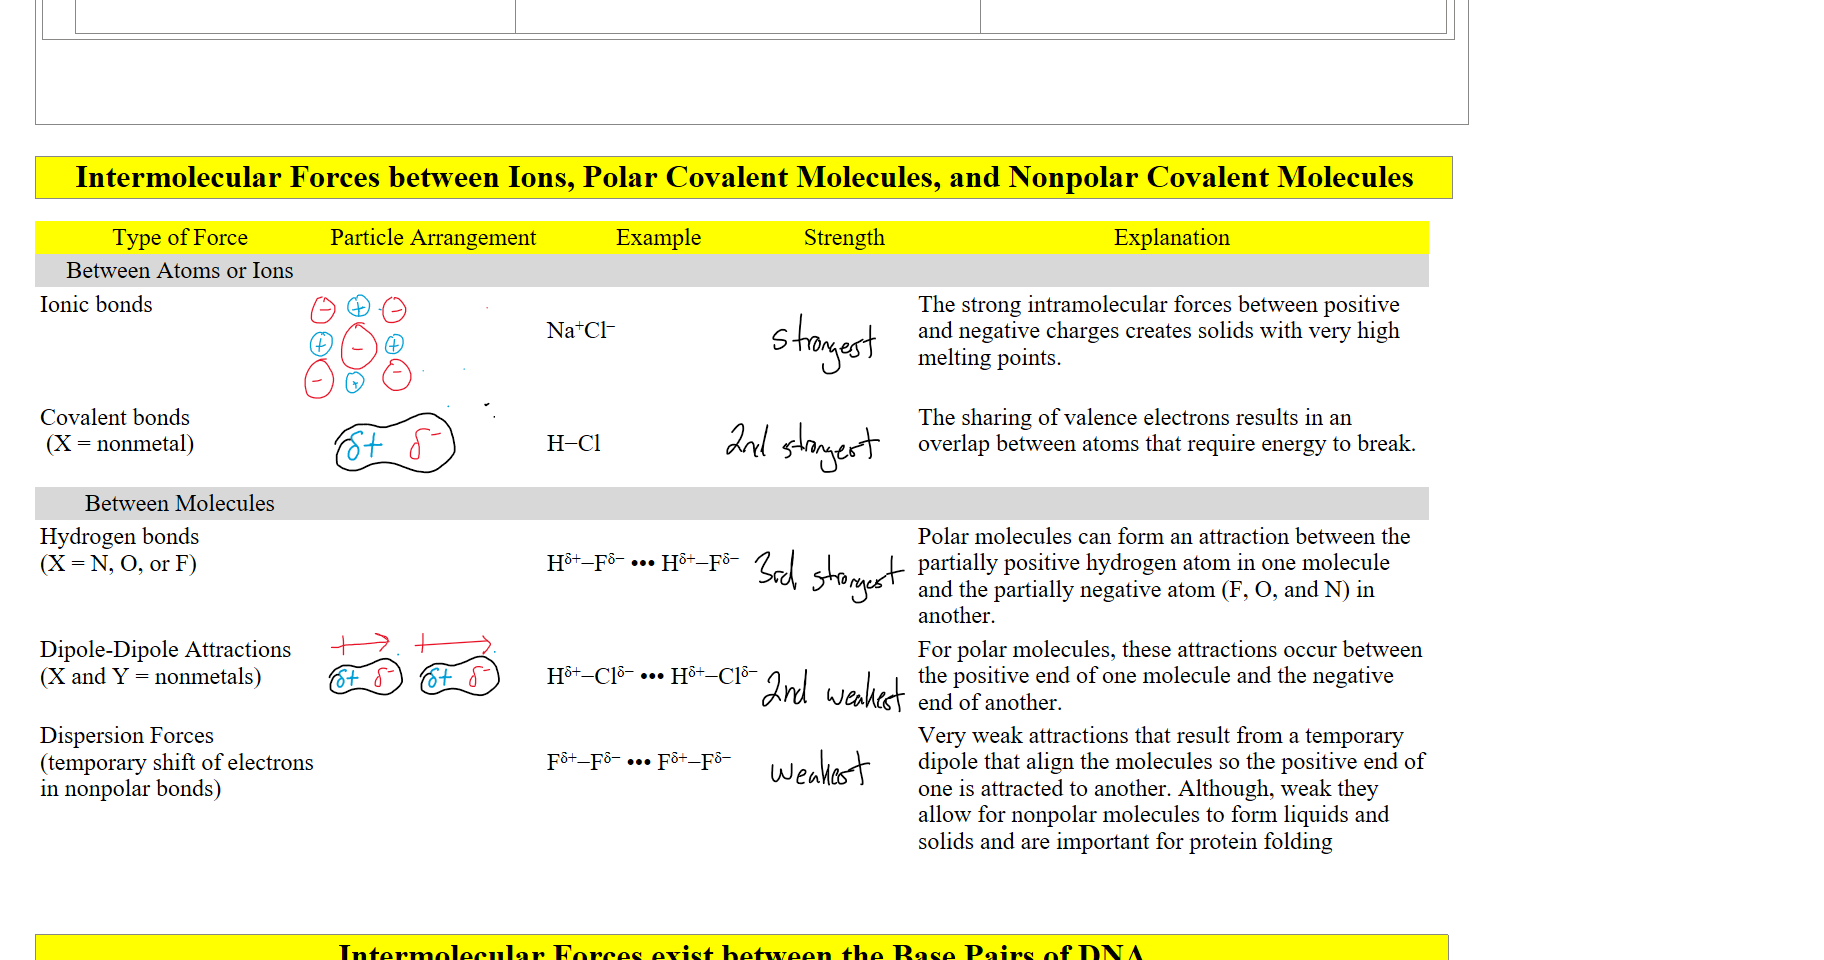 Intermolecular Forces between Ions, Polar Covalent Molecules, and Nonpolar Covalent Molecules
Type of Force Particle Arrangement Example Strength Explanation
Between Atoms or Ions
Ionic bonds
− + −
+ − +
− + −
Na⁺Cl⁻
strongest
The strong intramolecular forces between positive
and negative charges creates solids with very high
melting points.
Covalent bonds
(X = nonmetal)
δ+ δ−
H–Cl
2nd strongest
The sharing of valence electrons results in an
overlap between atoms that require energy to break.
Between Molecules
Hydrogen bonds
(X = N, O, or F)
Hδ+–Fδ− ••• Hδ+–Fδ−
3rd strongest
Polar molecules can form an attraction between the
partially positive hydrogen atom in one molecule
and the partially negative atom (F, O, and N) in
another.
Dipole-Dipole Attractions
(X and Y = nonmetals)
δ+ δ− δ+ δ−
Hδ+–Clδ− ••• Hδ+–Clδ−
2nd weakest
For polar molecules, these attractions occur between
the positive end of one molecule and the negative
end of another.
Dispersion Forces
(temporary shift of electrons
in nonpolar bonds)
Fδ+–Fδ− ••• Fδ+–Fδ−
weakest
Very weak attractions that result from a temporary
dipole that align the molecules so the positive end of
one is attracted to another. Although, weak they
allow for nonpolar molecules to form liquids and
solids and are important for protein folding
Intermolecular Forces exist between the Base Pairs of DNA